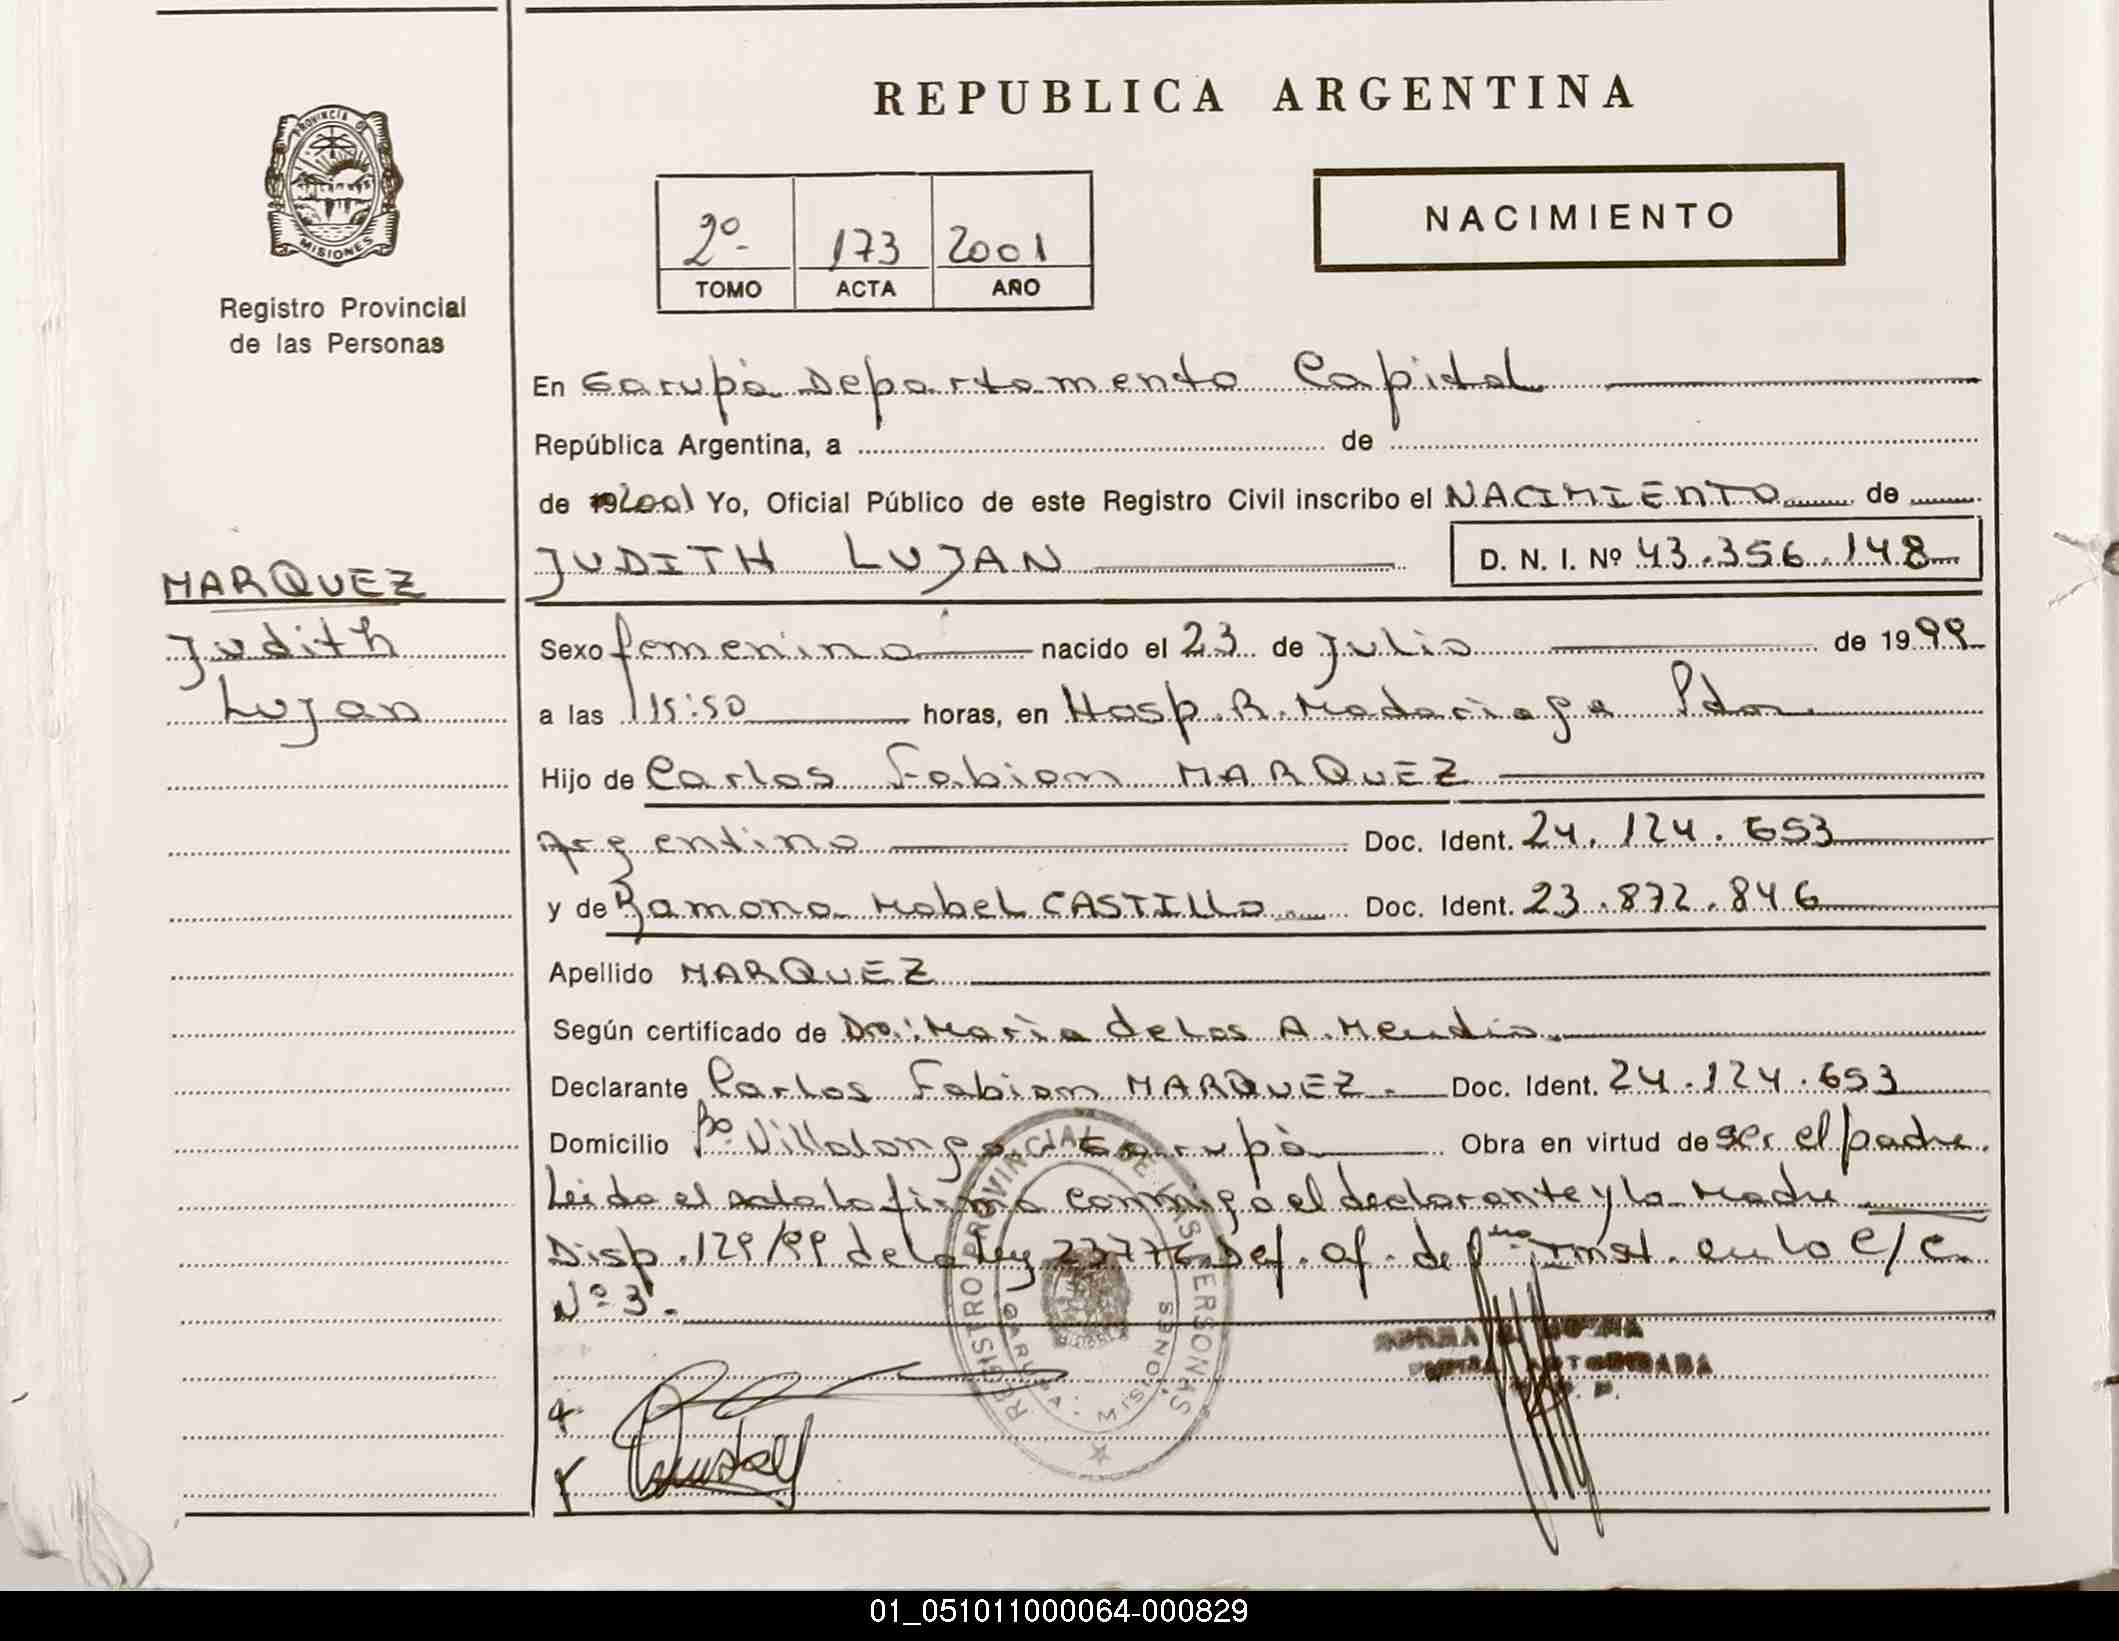 REPUBLICA ARGENTINA
PROVINCIA DE
MISIONES
Registro Provincial
de las Personas
2º 173 2001
TOMO ACTA AÑO
NACIMIENTO
En Garupá Departamento Capital
República Argentina, a de
de 2001 Yo, Oficial Público de este Registro Civil inscribo el NACIMIENTO de
JUDITH LUJAN D. N. I. Nº 43.356.148
MARQUEZ
Judith
Lujan
Sexo femenino nacido el 23 de Julio de 1999
a las 15:50 horas, en Hosp. R. Madariaga Pdas
Hijo de Carlos Fabian MARQUEZ
Argentino Doc. Ident. 24.124.653
y de Ramona Mabel CASTILLO Doc. Ident. 23.872.846
Apellido MARQUEZ
Según certificado de Dra: María de los A. Mendis
Declarante Carlos Fabian MARQUEZ.- Doc. Ident. 24.124.653
Domicilio Bº Villalonga Garupá Obra en virtud de ser el padre.
Leída el acta la firma conmigo el declarante y la Madre
Disp. 129/99 de la ley 23776 Def. Of. de 1ra Inst. en lo C/C.
Nº 3.-
REGISTRO PROVINCIAL DE LAS PERSONAS
GARUPA - MISIONES
AUTORIZADA
01_051011000064-000829